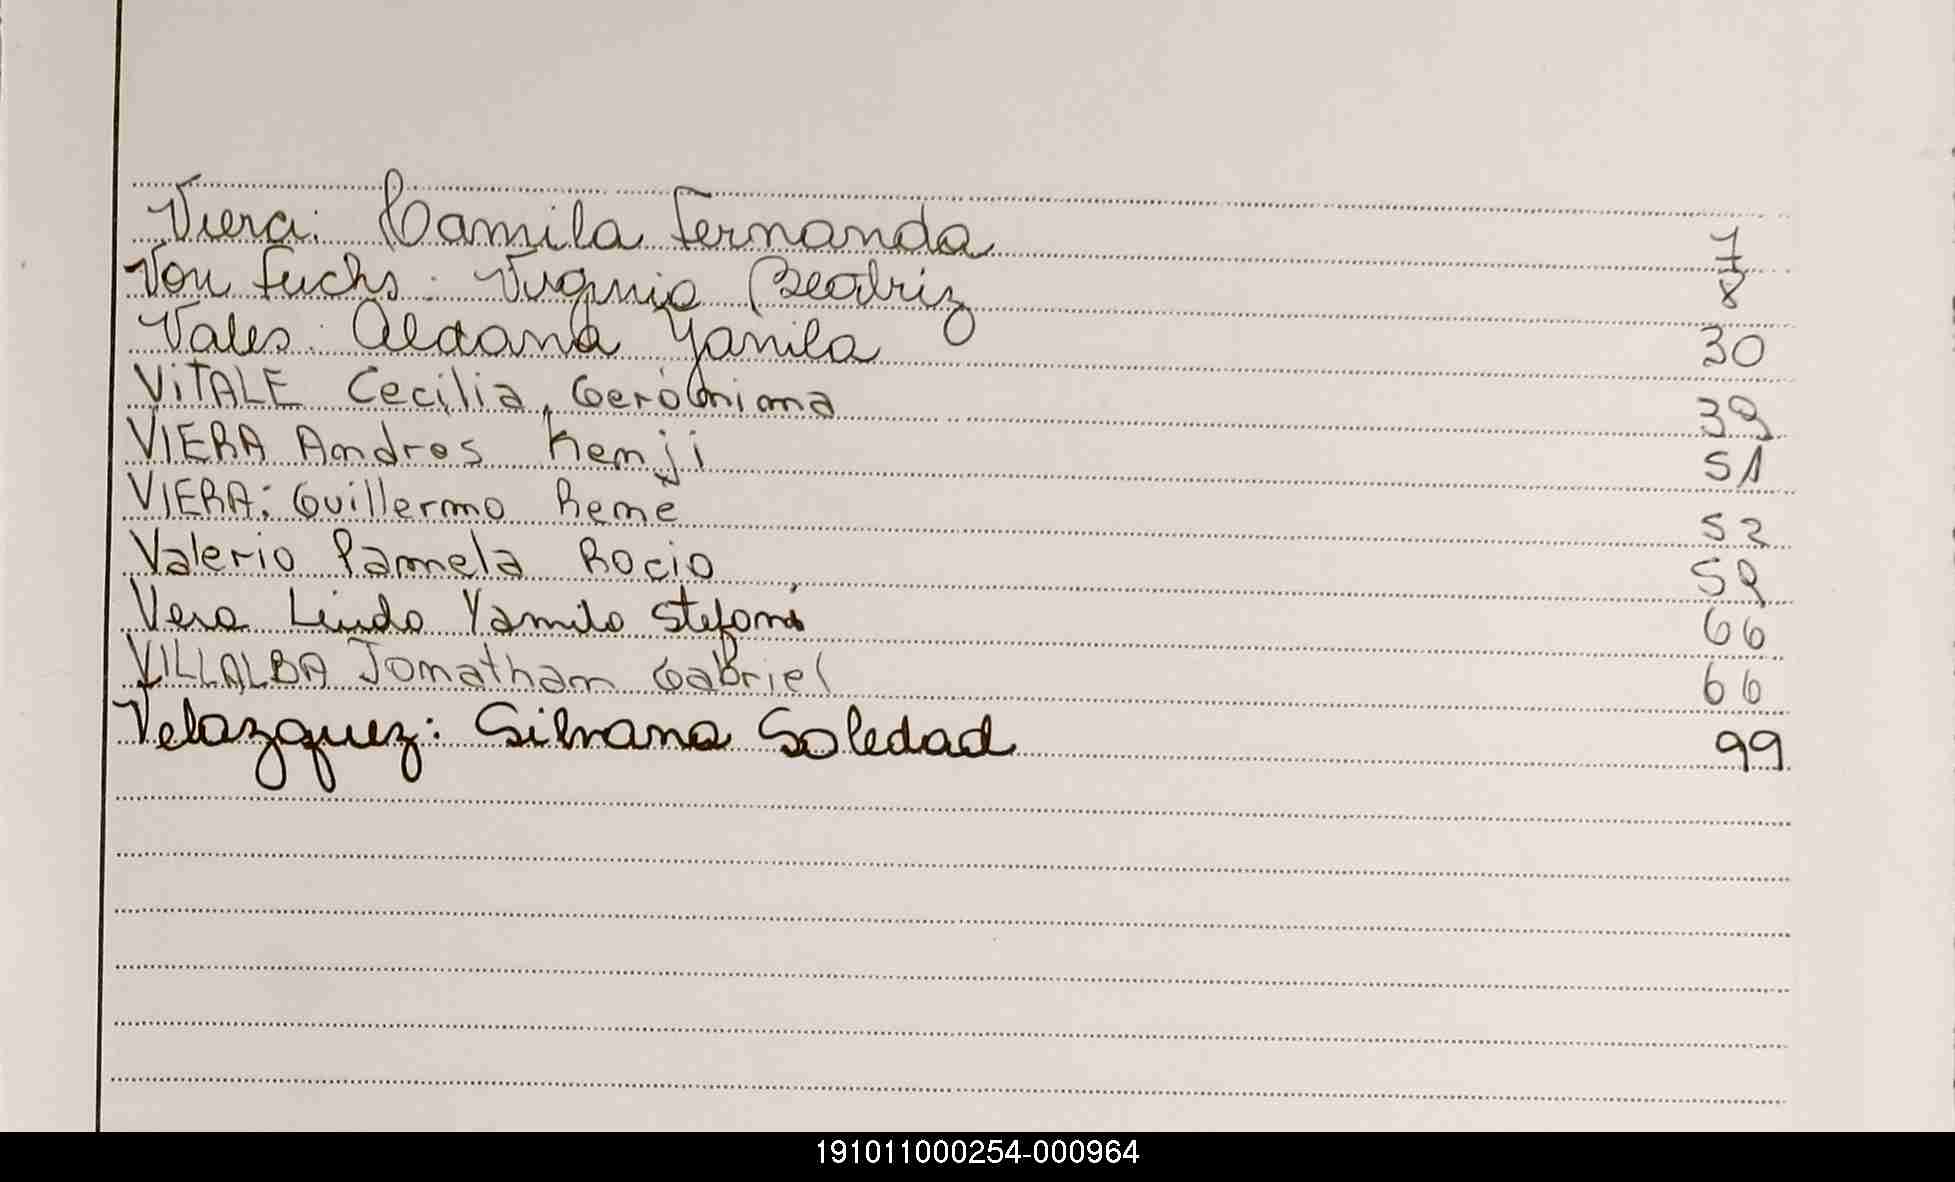 Viera: Camila Fernanda 7
Von Fuchs: Virginia Beatriz 8
Vales: Aldana Yanila 30
ViTALE Cecilia, Gerónima 39
VIERA Andres Kenji 51
VIERA: Guillermo Rene 52
Valerio Pamela Rocio 59
Vera Lindo Yamila Stefani 66
VILLALBA Jonathan Gabriel 66
Velazquez: Silvana Soledad 99
191011000254-000964